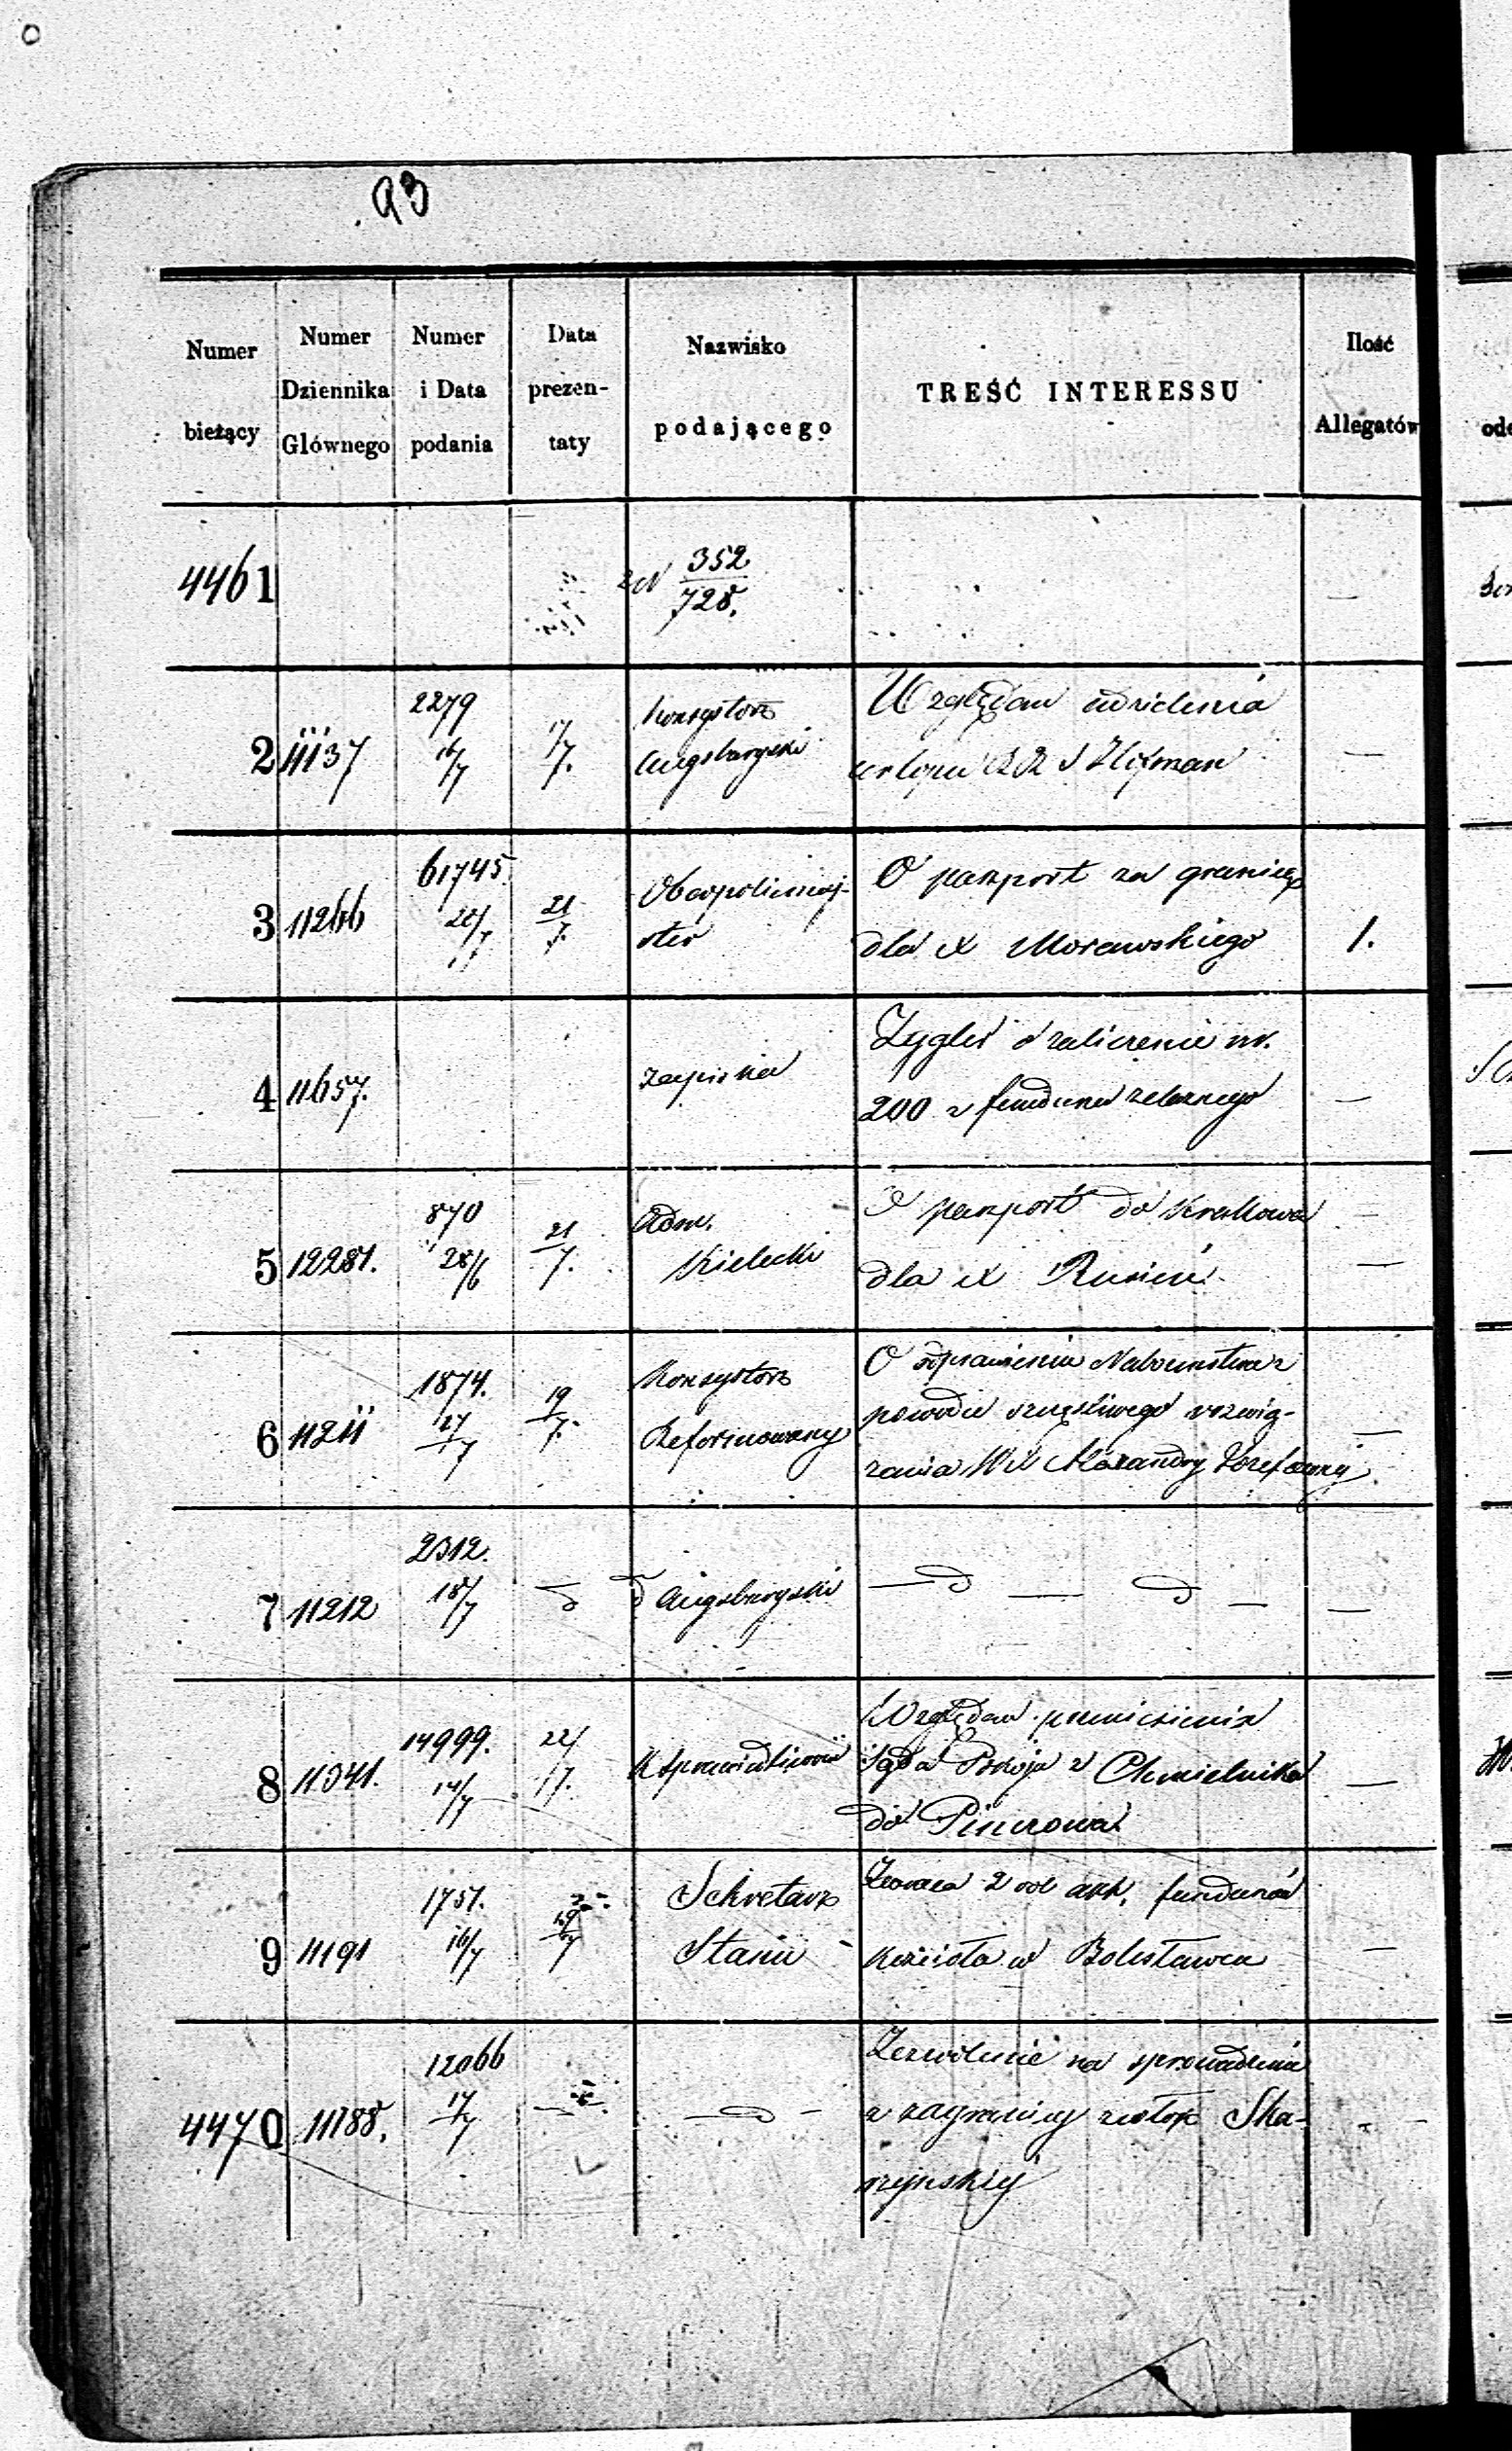 93
Numer bieżący
Numer Dziennika Głównego
Numer i Data podania
Data prezen-taty
Nazwisko podającego
TREŚĆ INTERESSU
Ilość Allegatów
4461
352
728.
2
11137
2279
16/7
17/7.
Konsystorz
Augsburgski
Względem udzielenia
urlopu
3
11266
61745.
20/7
21/7.
Oberpolicmaj-
ster
O paszport za granicę
dla X Morawskiego
1.
4
11657.
Zapiska
o zaliczenie
200 z funduszu żelaznego
5
12287.
870
28/6
21/7.
Adm.
Kielecki
O paszport do Krakowa
dla X
6
11211
1874.
17/7
19/7.
Konsystorz
Reformowany
O odprawieniu Nabożeństwa z
powodu szczęśliwego rozwią-
zania WX Alexandry Józefowny
7
11212
2312.
18/7
Augsburgski
8
11341.
14999.
14/7
22/7.
K Sprawiedliwości
Względem przeniesienia
Sądu Pokoju z Chmielnika
do Pinczowa
9
11191
1757.
16/7
19/7
Sekretarz
Stanu
Zwraca 2 vol akt. funduszów
kościoła w Bolesławcu
4470
11188.
12066
17/7
Zezwolenie na sprowadzenie
z zagranicy zwłok Ska-
rzynskiej